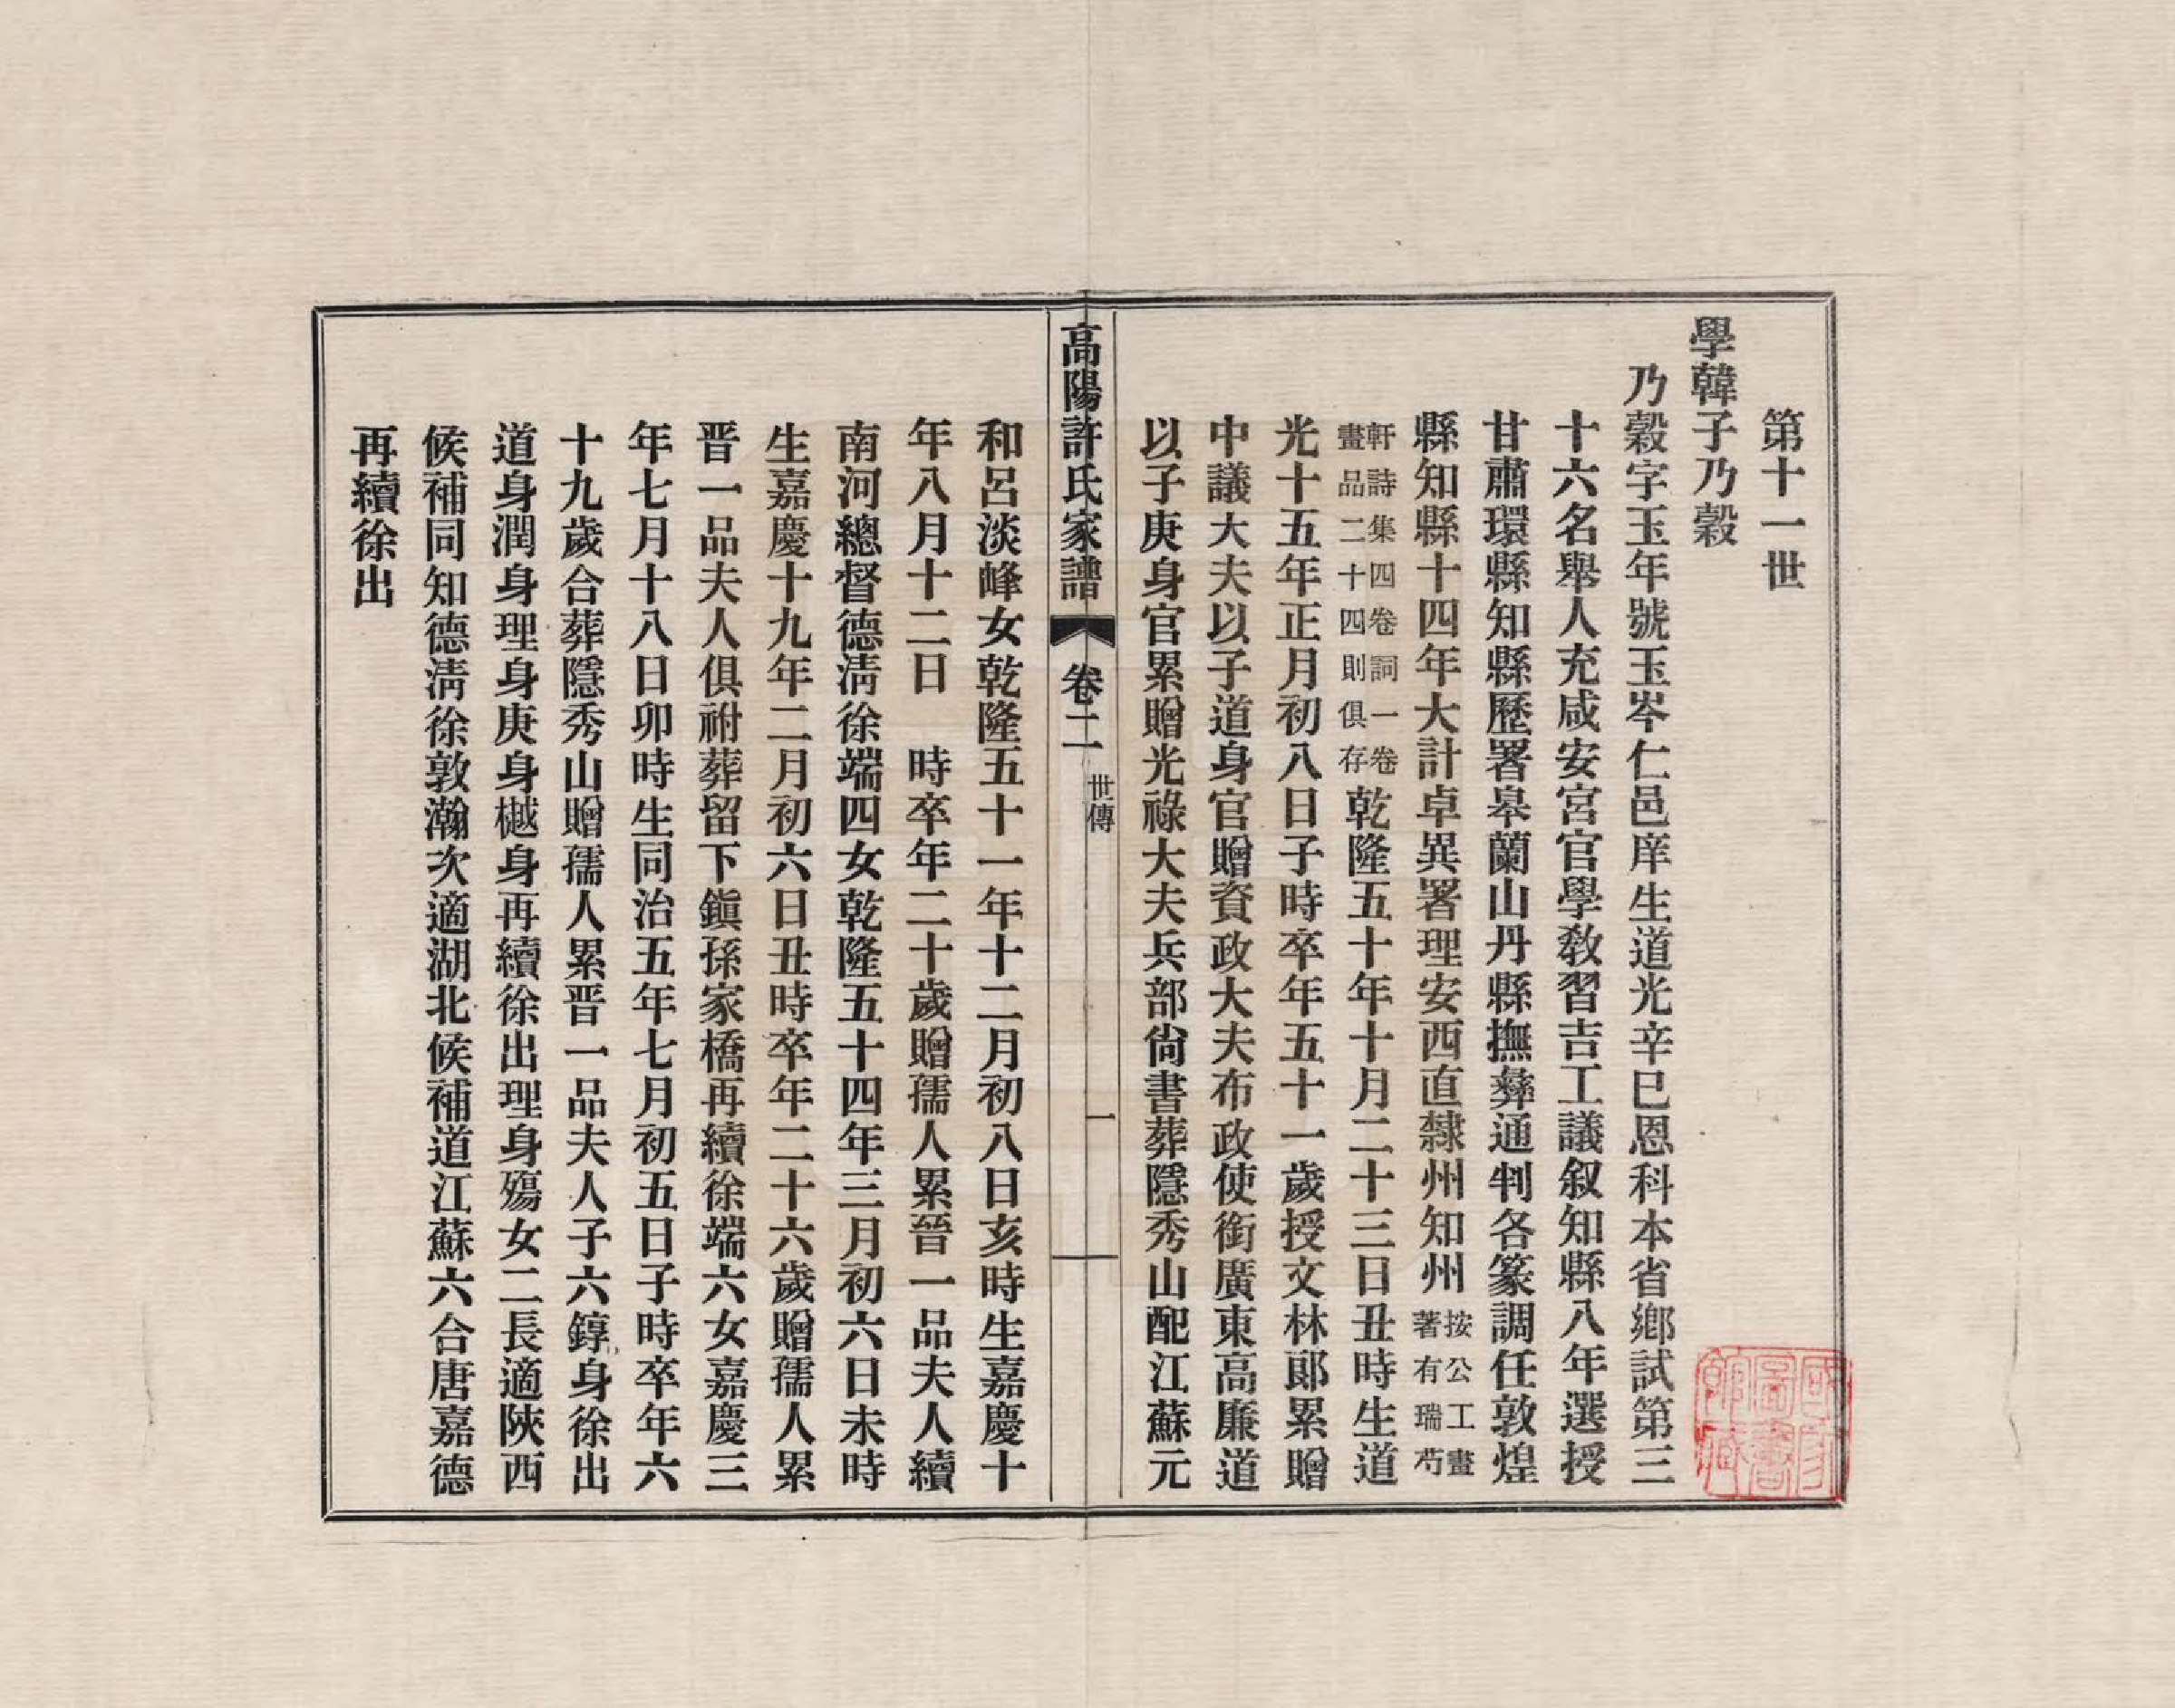 第十一世
學韓子乃穀
乃穀字玉年號玉岑仁邑庠生道光辛巳恩科本省鄉試第三
十六名舉人充咸安宮官學教習吉工議叙知縣八年選授
甘肅環縣知縣歷署皋蘭山丹縣撫彝通判各篆調任敦煌
縣知縣十四年大計卓異署理安西直隸州知州按公工畫
著有瑞芍
軒詩集四卷詞一卷
畫品二十四則俱存乾隆五十年十月二十三日丑時生道
光十五年正月初八日子時卒年五十一歲授文林郎累贈
中議大夫以子道身官贈資政大夫布政使銜廣東高廉道
以子庚身官累贈光祿大夫兵部尙書葬隱秀山配江蘇元
高陽許氏家譜 卷二 世傳 一
和呂淡峰女乾隆五十一年十二月初八日亥時生嘉慶十
年八月十二日 時卒年二十歲贈孺人累晉一品夫人續
南河總督德淸徐端四女乾隆五十四年三月初六日未時
生嘉慶十九年二月初六日丑時卒年二十六歲贈孺人累
晋一品夫人俱祔葬留下鎭孫家橋再續徐端六女嘉慶三
年七月十八日卯時生同治五年七月初五日子時卒年六
十九歲合葬隱秀山贈孺人累晋一品夫人子六錞身徐出
道身潤身理身庚身樾身再續徐出理身殤女二長適陝西
候補同知德淸徐敦瀚次適湖北候補道江蘇六合唐嘉德
再續徐出
國家圖書館藏